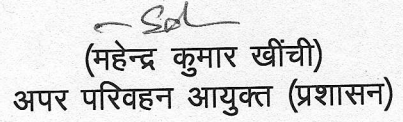 - Sd
(महेन्द्र कुमार खींची)
अपर परिवहन आयुक्त (प्रशासन)